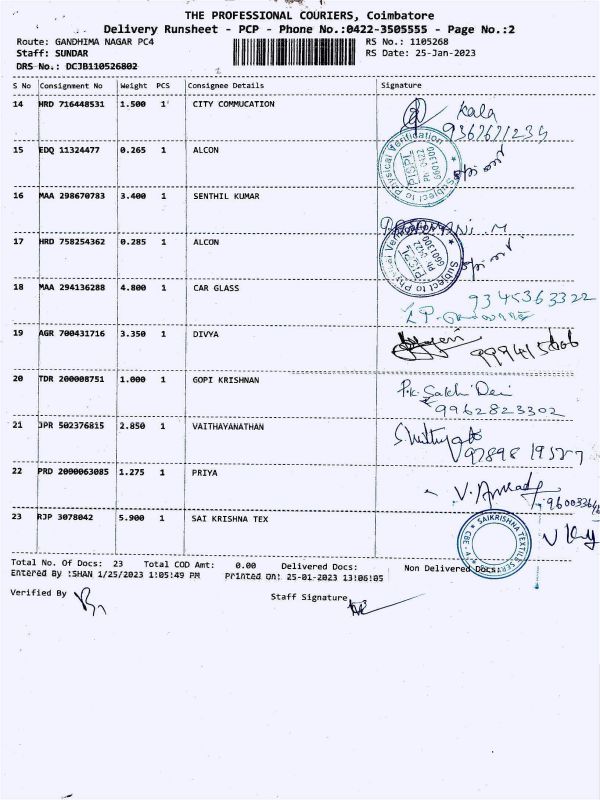 THE PROFESSIONAL COURIERS, Coimbatore
Delivery Runsheet - PCP - Phone No.:0422-3505555 - Page No.:2
Route: GANDHIMA NAGAR PC4
RS No.: 1105268
Staff: SUNDAR
RS Date: 25-Jan-2023
DRS No.: DCJB110526802
S No Consignment No Weight PCS Consignee Details Signature
14 HRD 716448531 1.500 1 CITY COMMUCATION
Kala
9367671234
15 EDQ 11324477 0.265 1 ALCON
Subject to Physical Verification
Ph: 0422
6601300
16 MAA 298670783 3.400 1 SENTHIL KUMAR
17 HRD 758254362 0.285 1 ALCON
Subject to Physical Verification
Ph: 0422
6601300
18 MAA 294136288 4.800 1 CAR GLASS
9345363322
19 AGR 700431716 3.350 1 DIVYA
20 TDR 200008751 1.000 1 GOPI KRISHNAN
P.K. Sakthi Dei
9962823302
21 JPR 502376815 2.850 1 VAITHAYANATHAN
22 PRD 2000063085 1.275 1 PRIYA
23 RJP 3078042 5.900 1 SAI KRISHNA TEX
Total No. Of Docs: 23 Total COD Amt: 0.00 Delivered Docs: Non Delivered Docs:
Entered By :SHAN 1/25/2023 1:05:49 PM Printed On: 25-01-2023 13:06:05
Verified By
Staff Signature